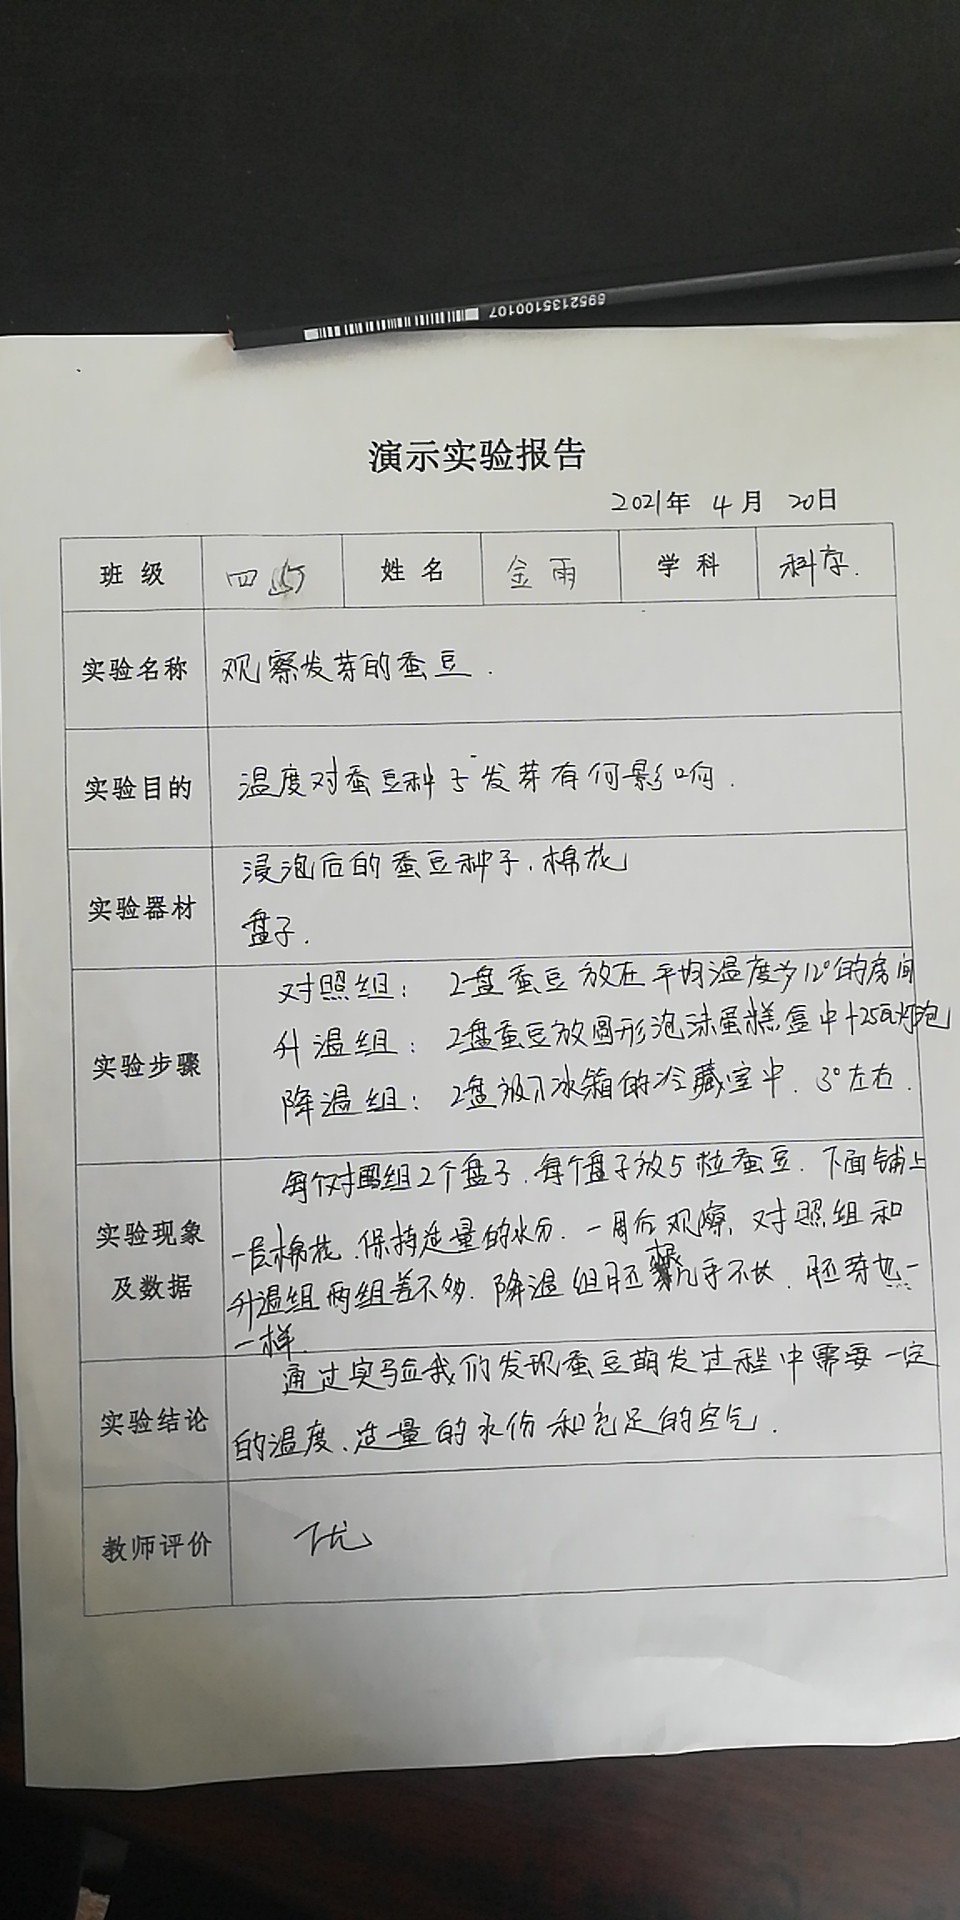 6952135100107
演示实验报告
2021年 4月 20日
班级 四 姓名 金雨 学科 科学.
实验名称 观察发芽的蚕豆.
实验目的 温度对蚕豆种子发芽有何影响.
实验器材 浸泡后的蚕豆种子.棉花
盘子.
实验步骤
对照组: 2盘蚕豆放在平均温度为12°的房间
升温组: 2盘蚕豆放圆形泡沫蛋糕盒中+25瓦灯泡
降温组: 2盘放入冰箱的冷藏室中. 3°左右.
实验现象及数据
每个对照组2个盘子.每个盘子放5粒蚕豆.下面铺上
一层棉花.保持适量的水分.一周后观察.对照组和
升温组两组差不多.降温组胚根几乎不长.胚芽也一
一样.
实验结论
通过实验我们发现蚕豆萌发过程中需要一定
的温度、适量的水份和充足的空气.
教师评价 优